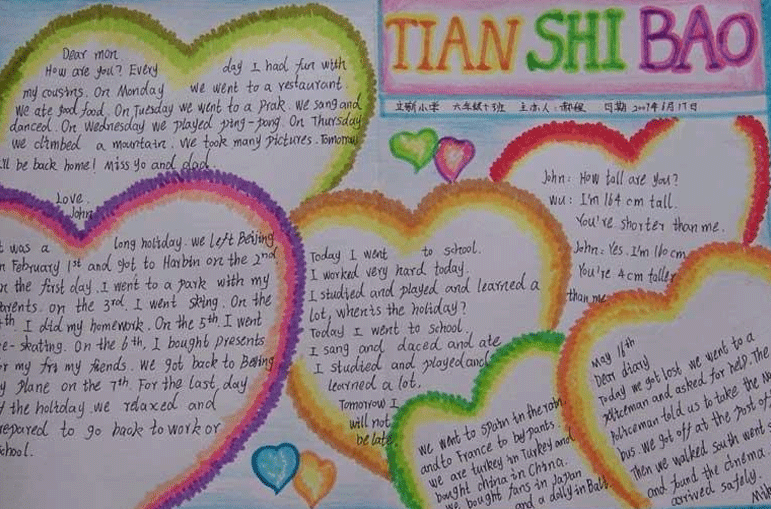 TIAN SHI BAO
立新小学 六年级十班 主办人:郝程 日期 2009年6月17日
Dear mon
How are you? Every day I had fun with
my cousins. On Monday we went to a restaurant.
We ate good food. On Tuesday we went to a prak. We sang and
danced. On Wednesday we played ping-pong. On Thursday
we climbed a mountain. We took many pictures. Tomorrow
I'll be back home! Miss yo and dad.
Love,
John
t was a long holiday. we left Beijing
n February 1st and got to Harbin on the 2nd
n the first day. I went to a park with my
arents. on the 3rd. I went skiing. On the
th. I did my homework. On the 5th. I went
e-skating. On the 6th, I bought presents
or my frs my friends. we got back to Beijing
y plane on the 7th. For the last day
f the holtday we relaxed and
repared to go back to work or
chool.
Today I went to school.
I worked very hard today.
I studied and played and learned a
lot, when's the holiday?
Today I went to school.
I sang and daced and ate
I studied and played and
learned a lot.
Tomorrow I
will not
be late.
John: How tall are you?
wu: I'm 164 cm tall.
You're shorter than me.
John: Yes. I'm 160 cm
You're 4cm taller
than me
we went to spain in the rain
and to France to buy pants.
we are turkey in Turkey and
bought china in China.
we bought fans in Japan
and a dolly in Bali.
May 16th
Dear diary
Today we got lost. we went to a
policeman and asked for help. The
policeman told us to take the No
bus. we got off at the post of
Then we walked south went s
and found the cinema.
arrived safely.